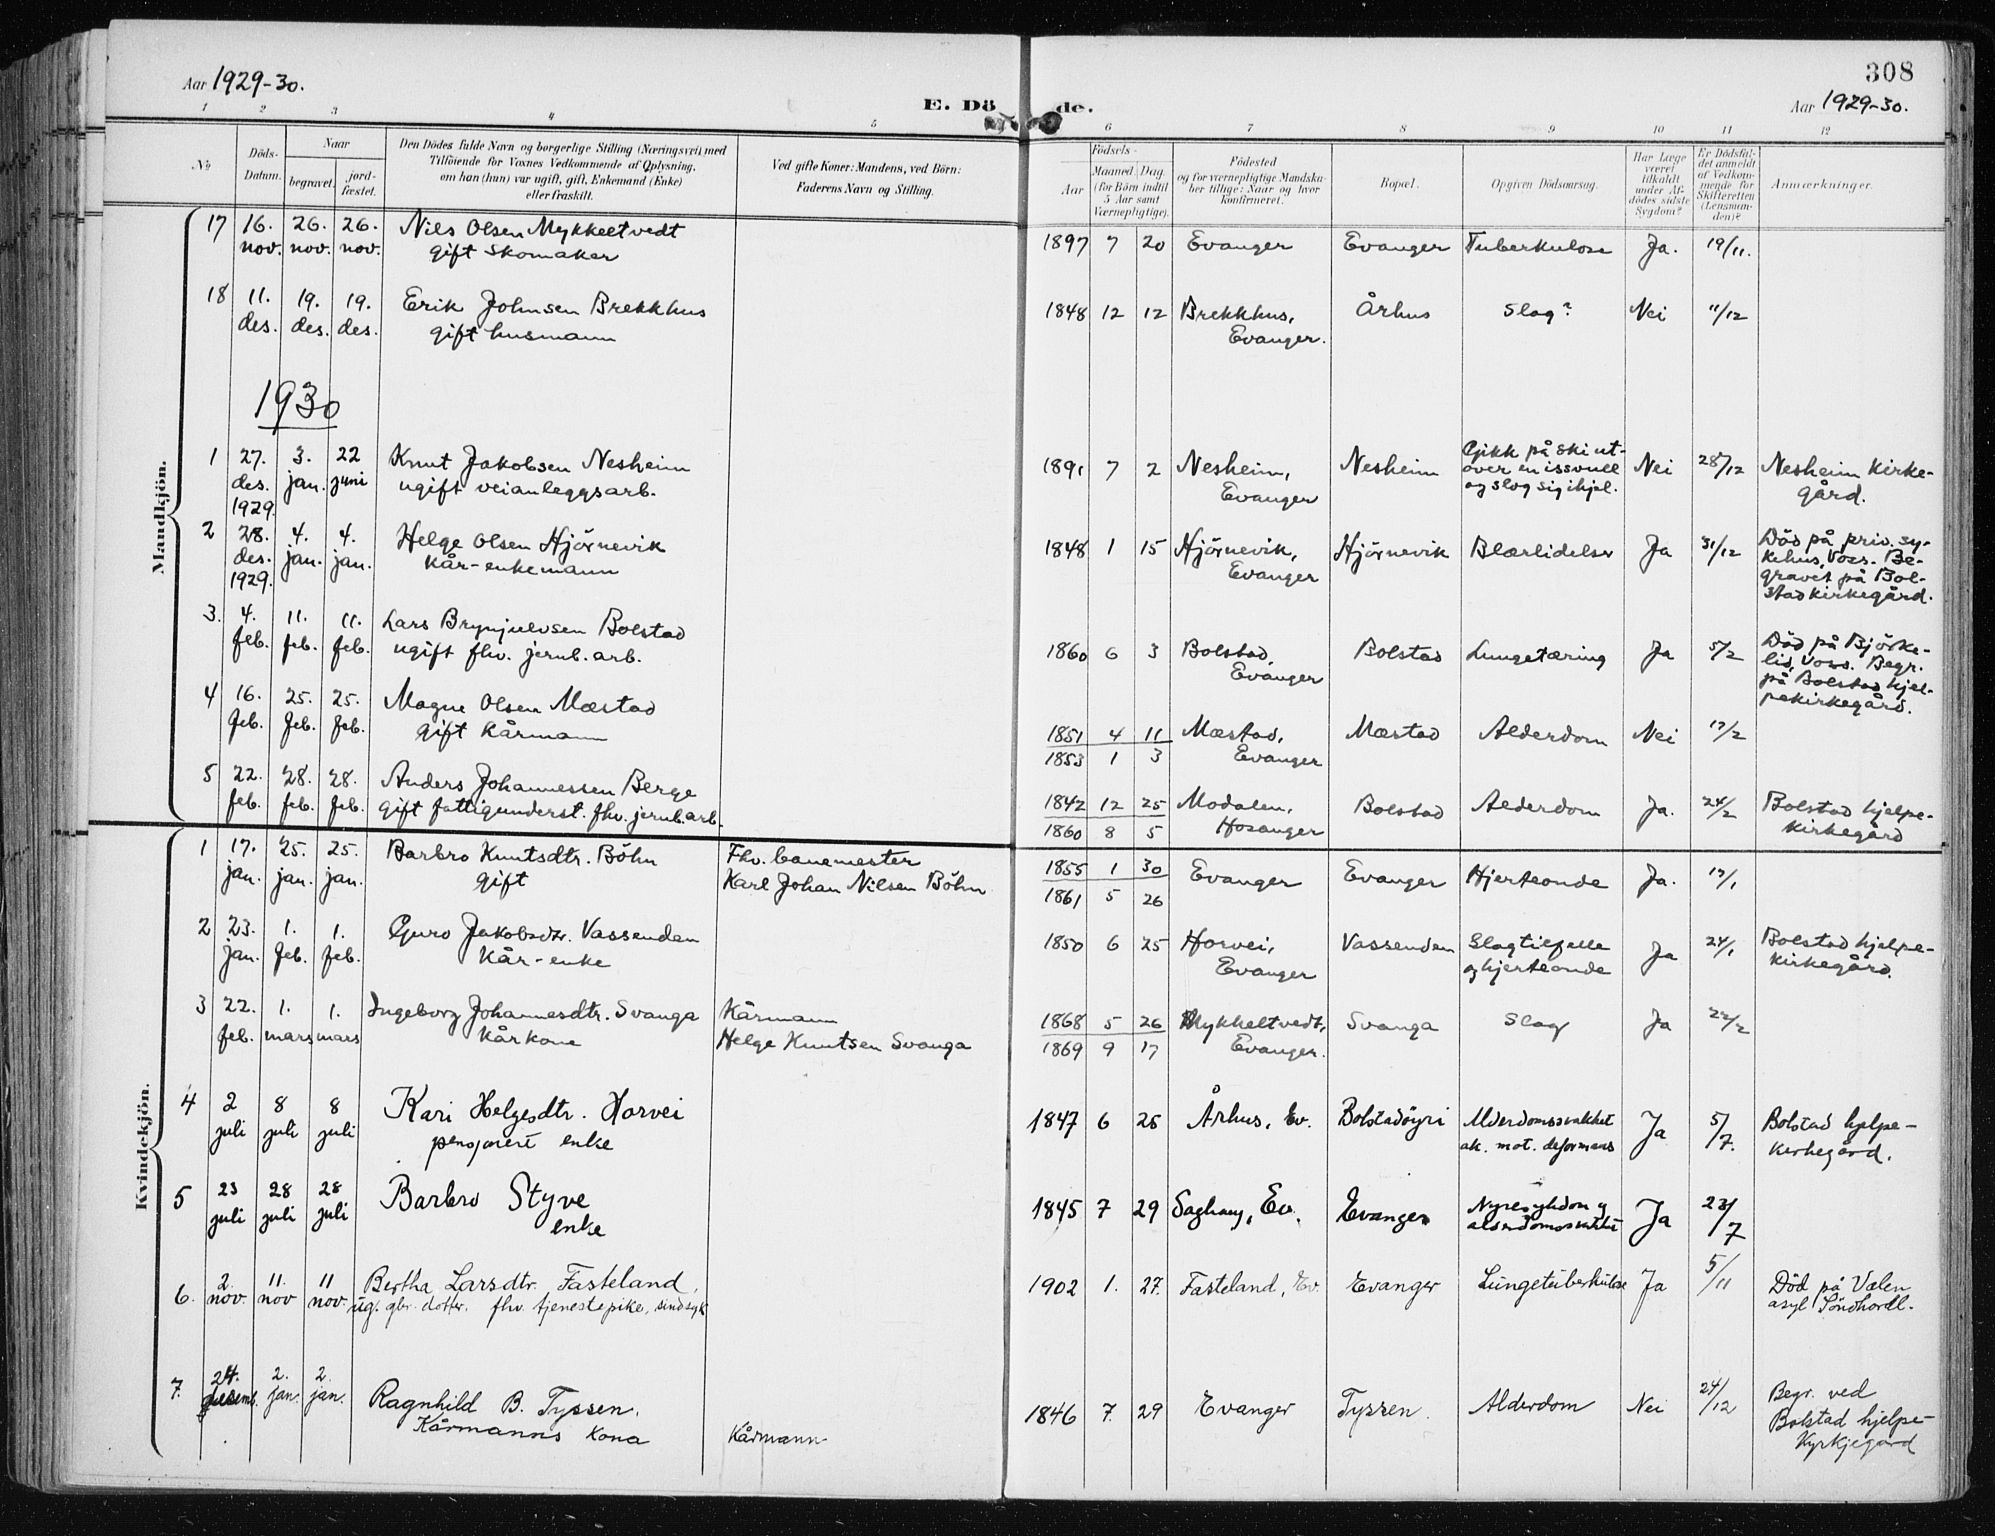 308
Aar 1929-30.
E. Dö de.
Aar 1929-30.
1 2 3 4 5 6 7 8 9 10 11 12
No
Döds-Datum.
Naar
begravet.
jord-festet.
Den Dödes fulde Navn og borgerlige Stilling (Næringsvei) med
Tilföiende for Voxnes Vedkommende af Oplysning,
om han (hun) var ugift, gift, Enkemand (Enke)
eller fraskilt.
Ved gifte Koner: Mandens, ved Börn:
Faderens Navn og Stilling.
Födsels-
Aar
Maaned. Dag.
(for Börn indtil
5 Aar samt
Værnepligtige).
Födested
og for værnepligtige Mandska-
ber tillige: Naar og hvor
konfirmeret.
Bopæl.
Opgiven Dödsaarsag.
Har Læge
været
tilkaldt
under Af-
dödes sidste
Sygdom?
Er Dödsfal-
det anmeldt
af Vedkom-
mende for
Skifteretten
(Lensman-
den)?
Anmærkninger.
Mandkjön.
17 16. 26. 26. Nils Olsen Mykkeltvedt
nov. nov. nov. gift skomaker
1897 7 20 Evanger Evanger Tuberkulose Ja. 19/11.
18 11. 19. 19. Erik Johnsen Brekkhus
des. des. des. gift husmann
1848 12 12 Brekkhus, Århus Slag? Nei 11/12
Evanger.
1930
1 27. 3. 22 Knut Jakobsen Nesheim
des. jan. juni ugift veianleggsarb.
1929.
1891 7 2 Nesheim, Nesheim Gikk på ski ut- Nei 28/12 Nesheim kirke-
Evanger over en issvull gård.
og slog sig ihjel.
2 28. 4. 4. Helge Olsen Hjörnevik
des. jan. jan. Kår-enkemann
1929.
1848 1 15 Hjörnevik, Hjörnevik Blærlidelse Ja 31/12 Död på priv. sy-
Evanger kehus, Voss. Be-
gravet på Bol-
stad kirkegård.
3. 4. 11. 11. Lars Brynjulvsen Bolstad
feb. feb. feb. ugift fhv. jernb.arb.
1860 6 3 Bolstad, Bolstad Lungetæring Ja 5/2 Död på Björke-
Evanger lid, Voss. Begr.
på Bolstad hjel-
pekirkegård.
4 16. 25. 25. Magne Olsen Mæstad
feb. feb. feb. gift kårmann
1851 4 11 Mæstad, Mæstad Alderdom Nei 17/2
1853 1 3 Evanger
5 22. 28. 28. Anders Johannessen Berge
feb. feb. feb. gift fattigunderst. fhv. jernb.arb.
1842 12 25 Modalen, Bolstad Alderdom Ja. 24/2 Bolstad hjelpe-
1860 8 5 Hosanger kirkegård
Kvindekjön.
1 17. 25. 25. Barbro Knutsdtr. Böhn Fhv. banemester
jan. jan. jan. gift Karl Johan Nilsen Böhn
1855 1 30 Evanger Evanger Hjerteonde Ja. 17/1
1861 5 26
2 23. 1. 1. Guro Jakobsdtr. Vassenden
jan. feb. feb. Kår-enke
1850 6 25 Horvei, Vassenden Slagtilfelle Ja 24/1 Bolstad hjelpe-
Evanger og hjerteonde kirkegård.
3 22. 1. 1. Ingeborg Johannesdtr. Svanga Kårmann
feb. mars mars Kårkone Helge Knutsen Svanga
1868 5 26 Mykkeltvedt, Svanga Slag Ja 22/2
1869 9 17 Evanger.
4 2 8 8 Kari Helgesdtr. Horvei
juli juli juli pensjonert enke
1847 6 25 Århus, Ev. Bolstadöyri Alderdomssvakhet Ja 5/7. Bolstad hjelpe-
ak. mot. deformans kirkegård.
5 23 28 28 Barbro Styve
juli juli juli enke
1845 7 29 Saghaug, Ev. Evanger Nyresykdom og Ja 23/7
alderdomssvakhet
6. 2. 11. 11 Bertha Larsdtr. Fasteland,
nov. nov nov. ug. gbr. dotter. fhv. tjenestepike, sindsyk
1902 1. 27. Fasteland, Ev. Evanger Lungetuberkulose Ja 5/11 Död på Valen
asyl Söndhordl.
7. 24. 2. 2. Ragnhild B. Tyssen.
desemb. jan. jan. Kårmanns kona Kårmann
1846 7. 29 Evanger Tyssen. Alderdom Nei 24/12 Begr. ved
Bolstad hjelpe-
kyrkjegard